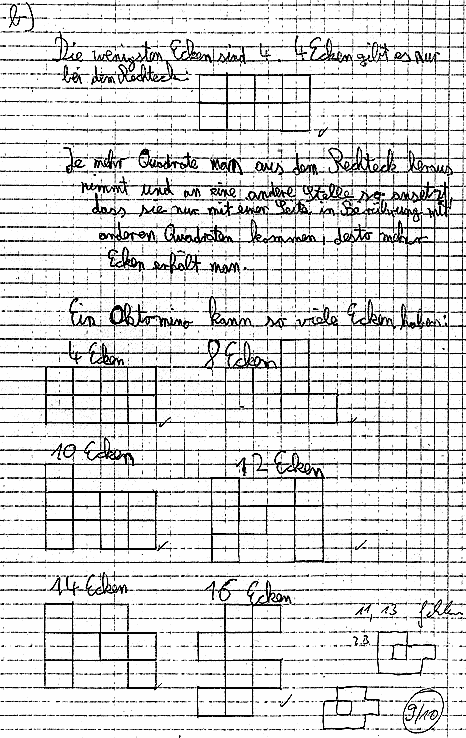 b)
Die wenigsten Ecken sind 4. 4 Ecken gibt es nur
bei dem Rechteck:
Je mehr Quadrate man aus dem Rechteck heraus
nimmt und an eine andere Stelle so ansetzt,
dass sie nur mit einer Seite in Berührung mit
anderen Quadraten kommen, desto mehr
Ecken erhält man.
Ein Oktomino kann so viele Ecken haben:
4 Ecken 8 Ecken
10 Ecken 12 Ecken
14 Ecken 16 Ecken
11, 13 fehlen
z.B.
9/10